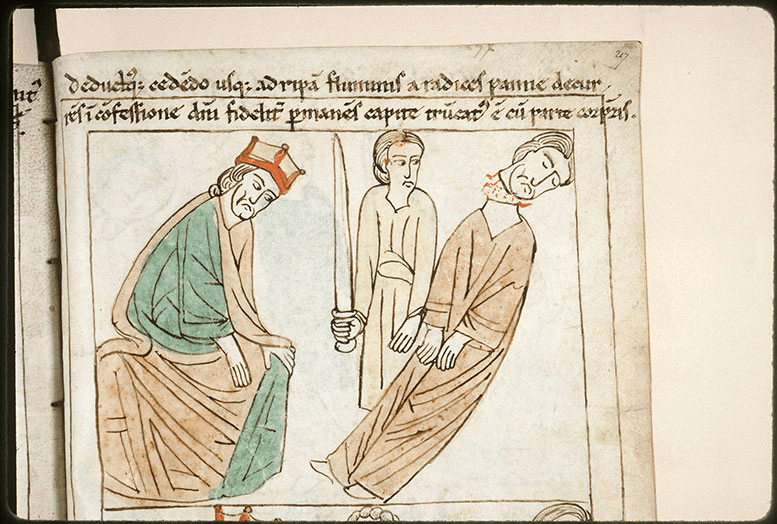 deductꝰ: cedēdo usq; ad ripā fluminis a radices pannie decur
tēs ī cōfessione dn̄i fidelit̄ ꝑmanēs capite trūcatꝰ ē cū parte corꝑis.